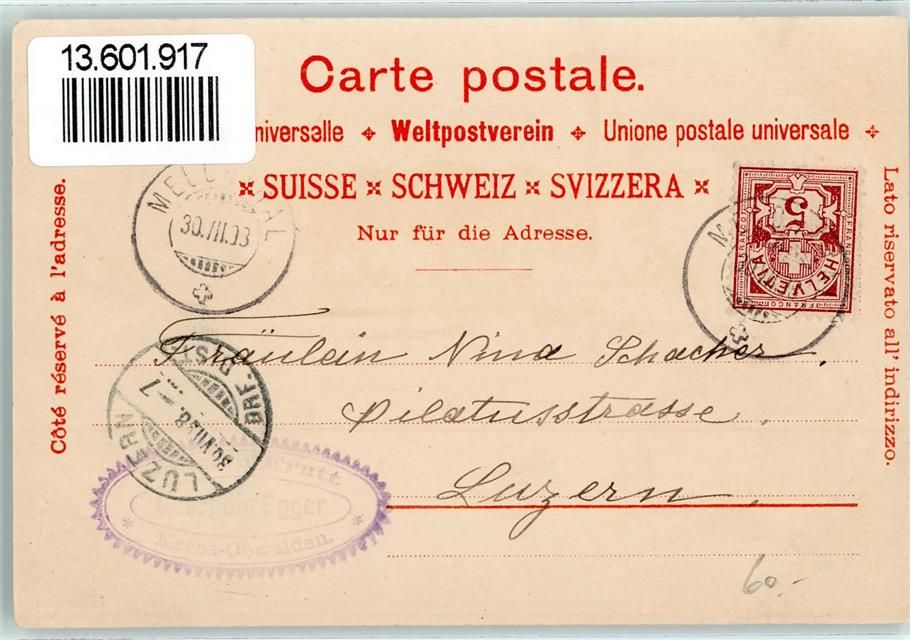 13.601.917
Carte postale.
universalle ✤ Weltpostverein ✤ Unione postale universale ✤
SUISSE × SCHWEIZ × SVIZZERA
Nur für die Adresse.
Côté réservé à l'adresse.
Lato riservato all' indirizzo.
30.VII.03
5
HELVETIA
FRANCO
Fräulein Nina Schacher,
Pilatusstrasse
Luzern.
LUZERN
BRF.
Frutt
Egger
Kerns-Obwalden.
60.-